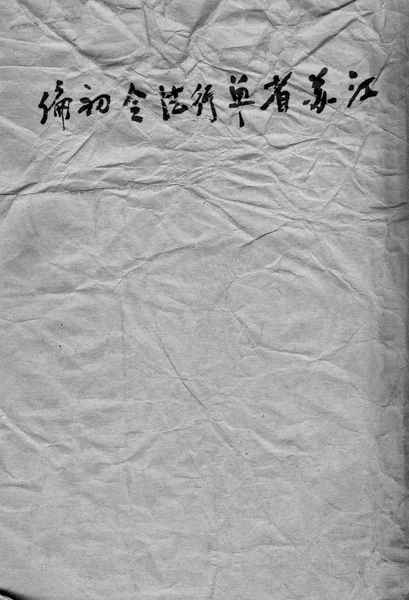 江苏省单行法令初编